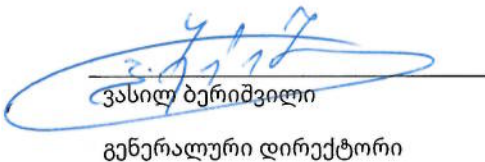 ვასილ ბერიშვილი
გენერალური დირექტორი